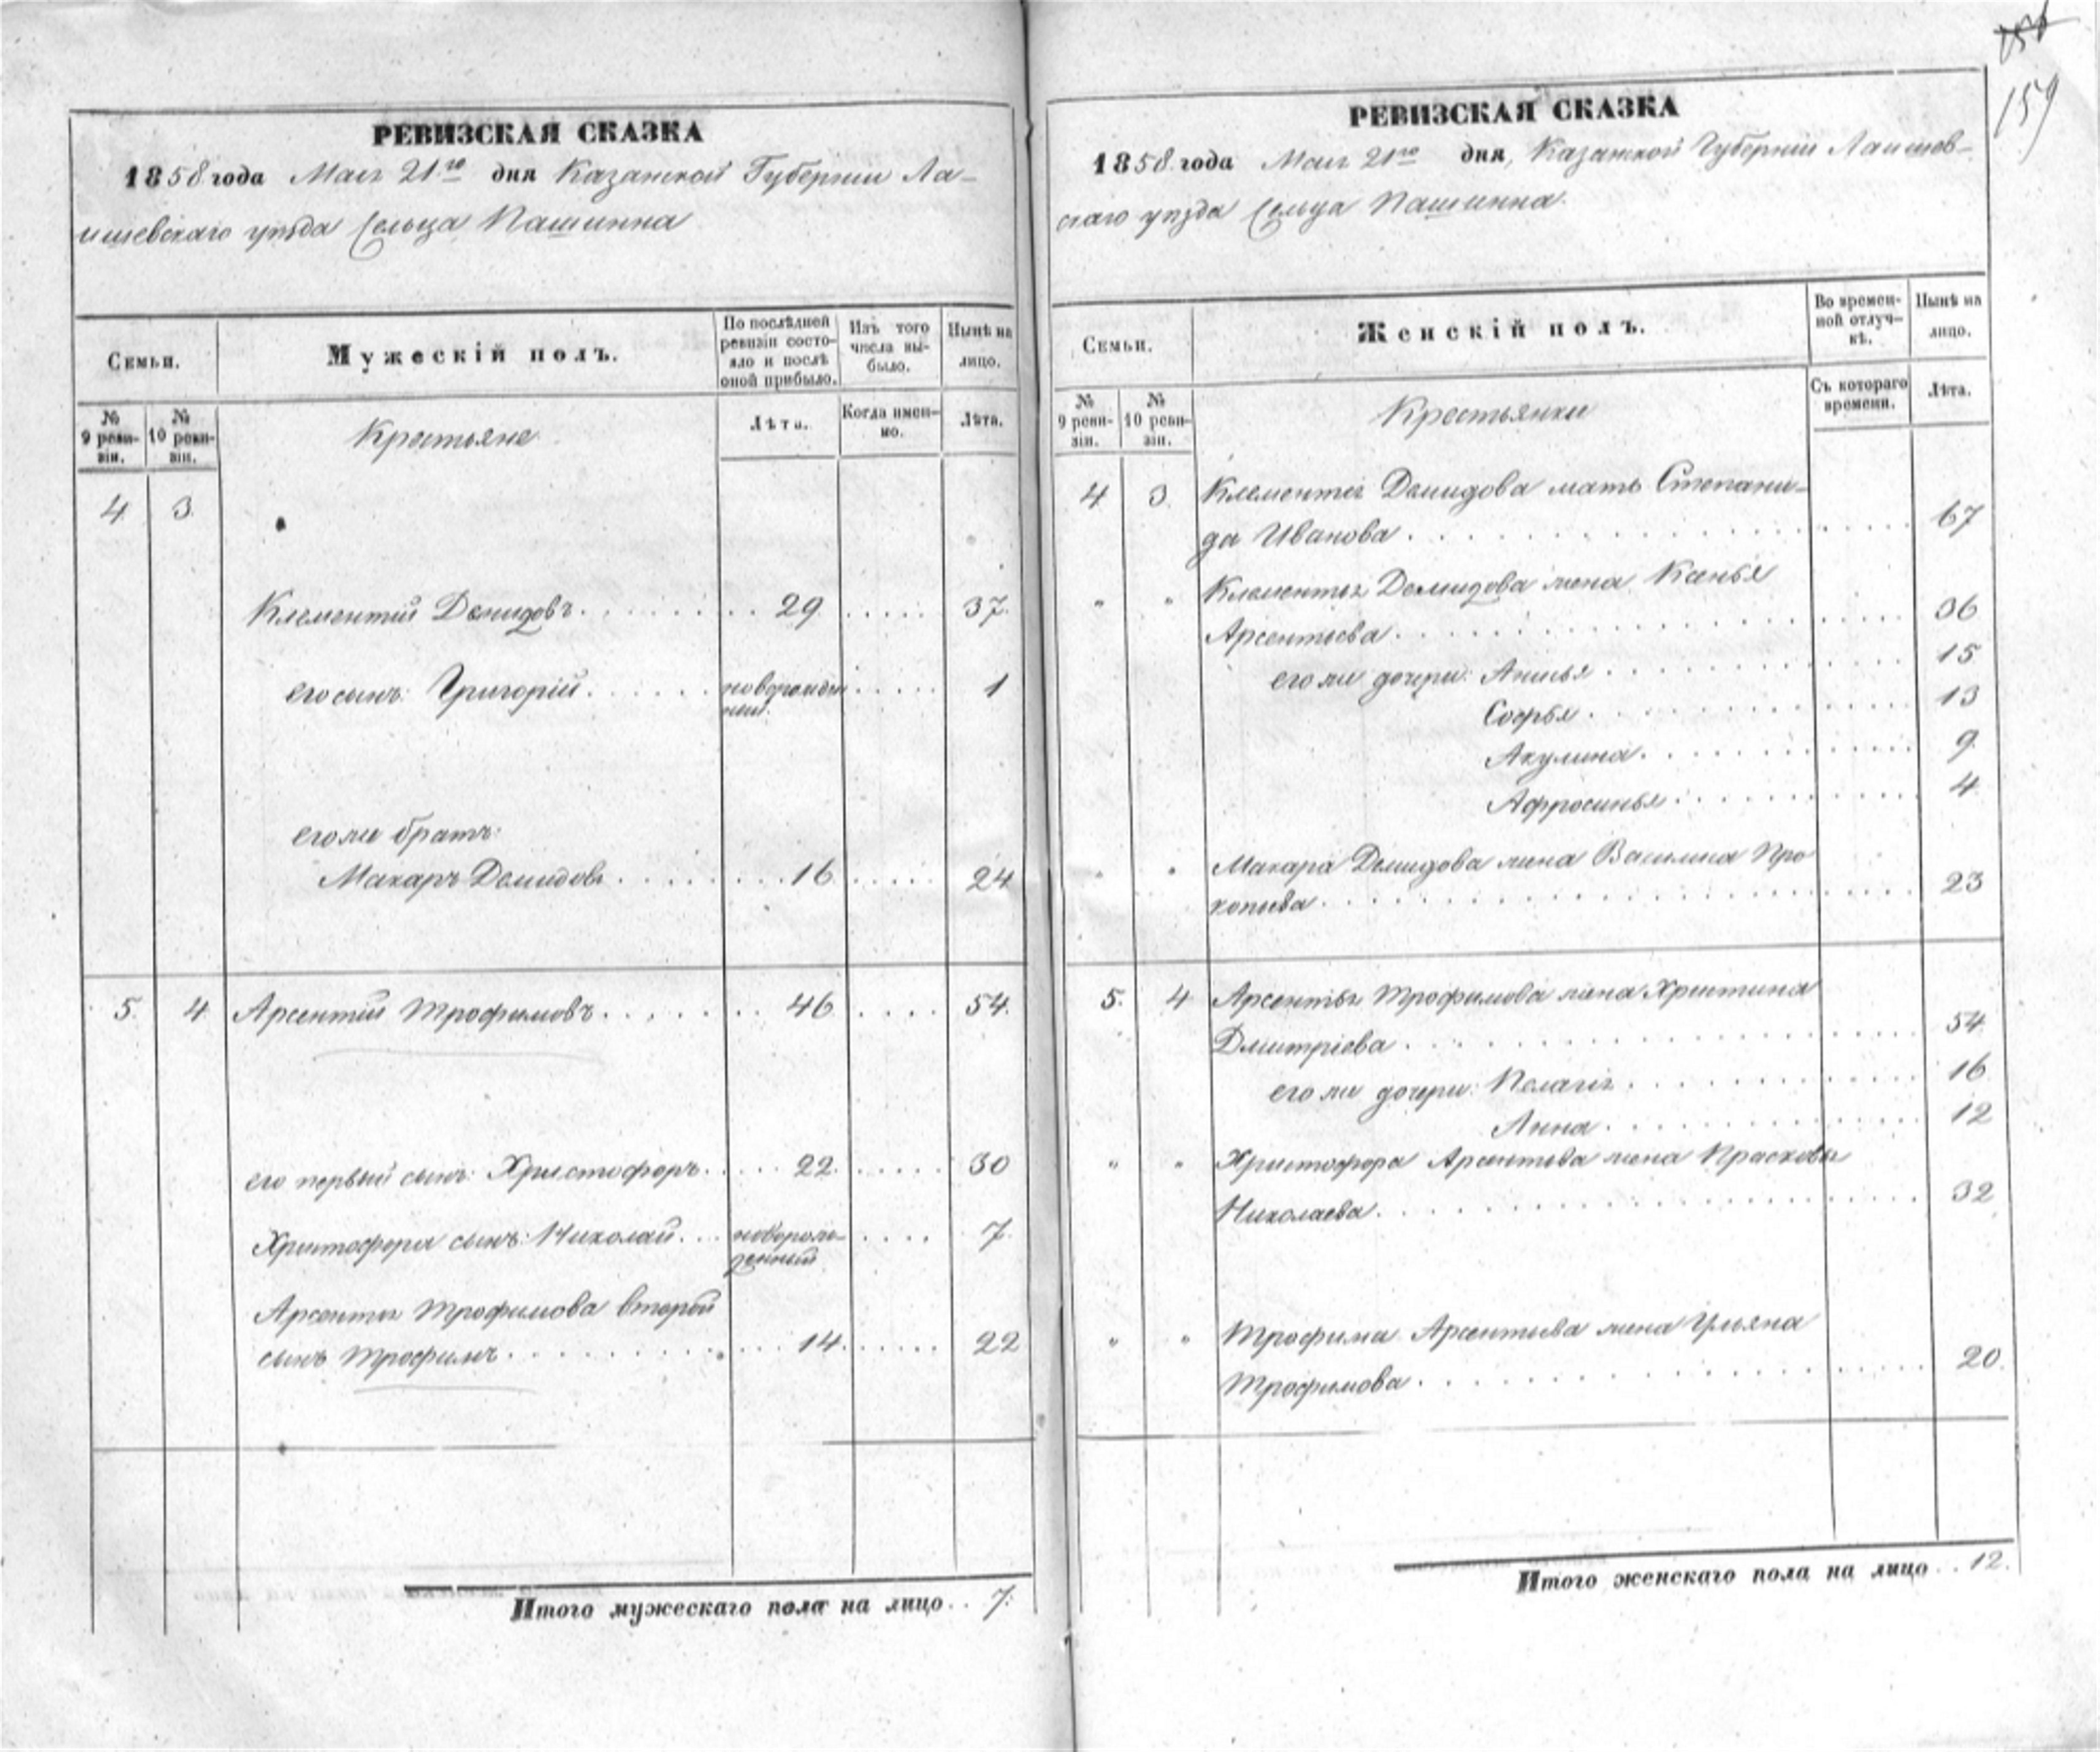 159
РЕВИЗСКАЯ СКАЗКА
1858 года Мая 21го дня Казанской Губернии Ла-
ишевскаго уѣзда Сельца Пашинна
Семьи.
Мужескій полъ.
По послѣдней ревизіи состо-яло и послѣ оной прибыло.
Изъ того числа вы-было.
Нынѣ на лицо.
№ 9 реви-зіи.
№ 10 реви-зіи.
Крестьяне
Лѣта.
Когда имен-но.
Лѣта.
4 3
Клементій Демидовъ 29 37
его сынъ: Григорій новорожден ный. 1
его же братъ:
Макаръ Демидовъ 16 24
5 4 Арсентій Трофимовъ 46 54
его первый сынъ: Христофоръ 22 30
Христофора сынъ: Николай новорож-денный 7
Арсентья Трофимова второй
сынъ Трофимъ 14 22
Итого мужескаго пола на лицо 7.
РЕВИЗСКАЯ СКАЗКА
1858 года Мая 21го дня, Казанской Губерніи Лаишев-
скаго уѣзда Сельца Пашинна.
Семьи.
Женскій полъ.
Во времен-ной отлуч-кѣ.
Нынѣ на лицо.
№ 9 реви-зіи.
№ 10 реви-зіи.
Крестьянки
Съ котораго времени.
Лѣта.
4 3 Клементія Демидова мать Степани-
да Иванова 67
" " Клементья Демидова жена Ксенья
Арсентьева 36
его же дочери: Анисья 15
Софья 13
Акулина 9
Афросинья 4
" " Макара Демидова жена Василиса Про
копьева 23
5. 4 Арсентья Трофимова жена Христина
Дмитріева 54
его же дочери: Пелагия 16
Анна 12
" " Христофора Арсентьева жена Прасковья
Николаева 32
" " Трофима Арсентьева жена Ульяна
Трофимова 20.
Итого женскаго пола на лицо 12.